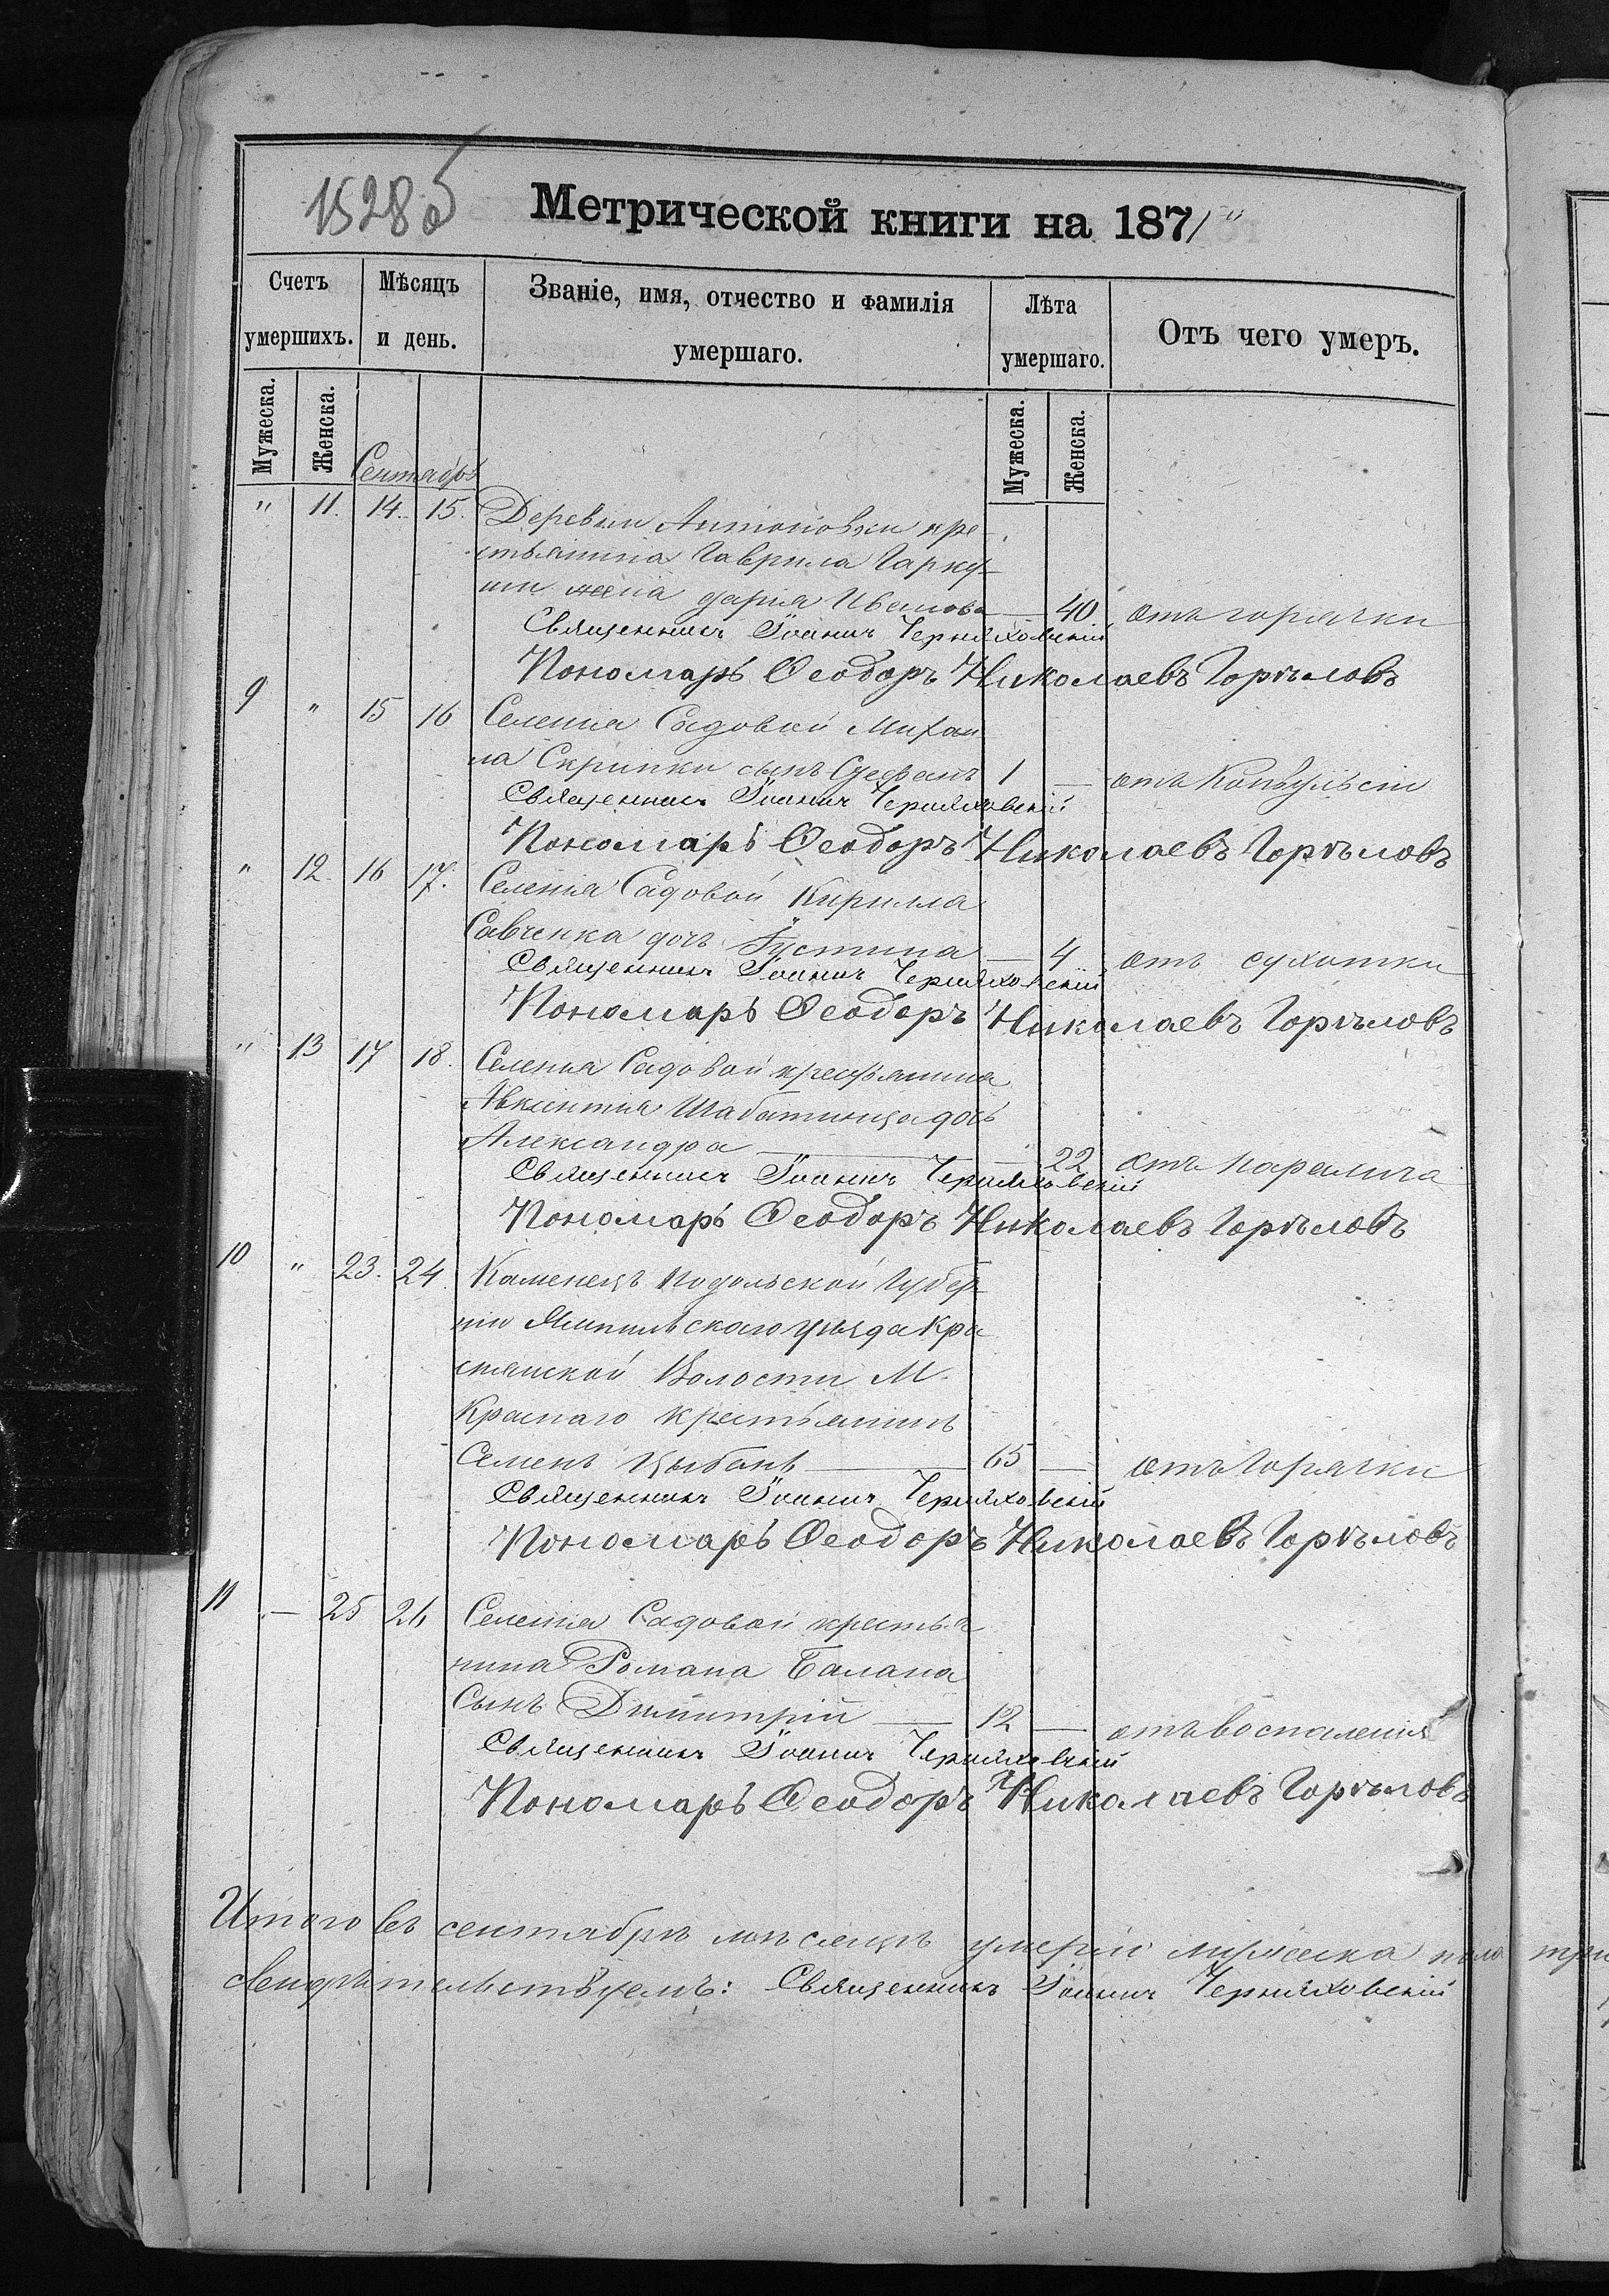 1528об
Метрической книги на 1871"
Счетъ умершихъ.
Мѣсяцъ и день.
Званіе, имя, отчество и фамилія умершаго.
Лѣта умершаго.
Отъ чего умеръ.
Мужеска.
Женска.
Мужеска.
Женска.
Сентябрь
" 11. 14. 15. Деревни Антоновки кре-
стьянина Гаврила Гарку-
ши жена Дарія Иванова — 40 отъ горячки
Священникъ Іоаннъ Черняховскій
Пономарь Феодоръ Николаевъ Горѣловъ
9 " 15 16 Селенія Садовой Михаи
ла Скрипки сынъ Стефанъ 1 — отъ Конвульсіи
Священникъ Іоаннъ Черняховскій
Пономарь Феодоръ Николаевъ Горѣловъ
" 12. 16 17. Селенія Садовой Кирилла
Савченка дочь Іустина — 4 отъ сухотки
Священникъ Іоаннъ Черняховскій
Пономарь Феодоръ Николаевъ Горѣловъ
" 13 17 18. Селенія Садовой крестьянина
Авксентія Шабатинца дочь
Александра — 22 отъ паралича
Священникъ Іоаннъ Черняховскій
Пономарь Феодоръ Николаевъ Горѣловъ
10 " 23. 24. Каменецъ Подольской Губер-
ніи Ямпильского уѣзда Кра
снянской Волости М.
Краснаго крестьянинъ
Семенъ Цыбанъ — 65 — отъ Горячки
Священникъ Іоаннъ Черняховскій
Пономарь Феодоръ Николаевъ Горѣловъ
11 — 25 26 Селенія Садовой крестья
нина Романа Балана
Сынъ Димитрій — 12 — отъ воспаленія
Священникъ Іоаннъ Черняховскій
Пономарь Феодоръ Николаевъ Горѣловъ
Итого въ сентябрѣ мѣсяцѣ умерло мужеска пола три
свидѣтельствуемъ: Священникъ Іоаннъ Черняховскій